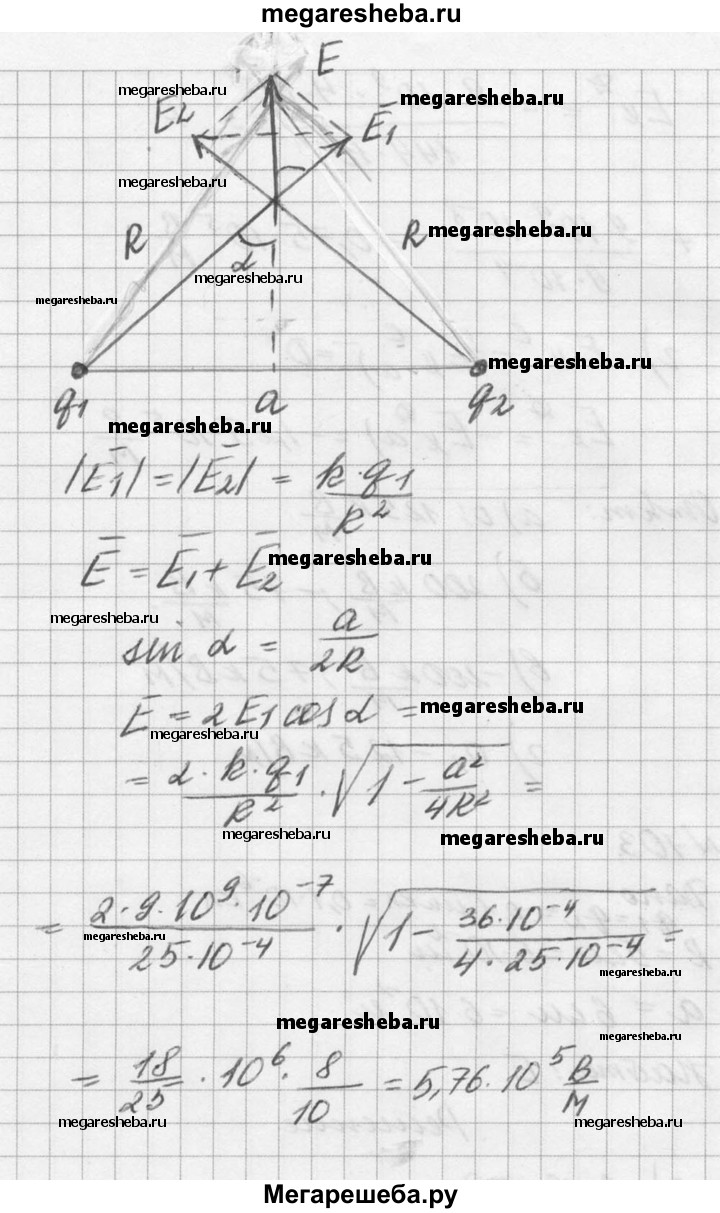 megaresheba.ru
E
megaresheba.ru
megaresheba.ru
E2
E1
megaresheba.ru
R
R megaresheba.ru
α
megaresheba.ru
megaresheba.ru
megaresheba.ru
q1
a
q2
megaresheba.ru
|E1| = |E2| = k·q1 / R²
E = E1 + E2 megaresheba.ru
megaresheba.ru
sin α = a / 2R
E = 2E1 cos α = megaresheba.ru
megaresheba.ru
= 2·k·q1 / R² · √(1 − a² / 4R²) =
megaresheba.ru
megaresheba.ru
= 2·9·10⁹·10⁻⁷ / 25·10⁻⁴ · √(1 − 36·10⁻⁴ / 4·25·10⁻⁴) =
megaresheba.ru
megaresheba.ru
megaresheba.ru
megaresheba.ru
= 18 / 25 · 10⁶ · 8 / 10 = 5,76·10⁵ В / М
megaresheba.ru
megaresheba.ru
Мегарешеба.ру